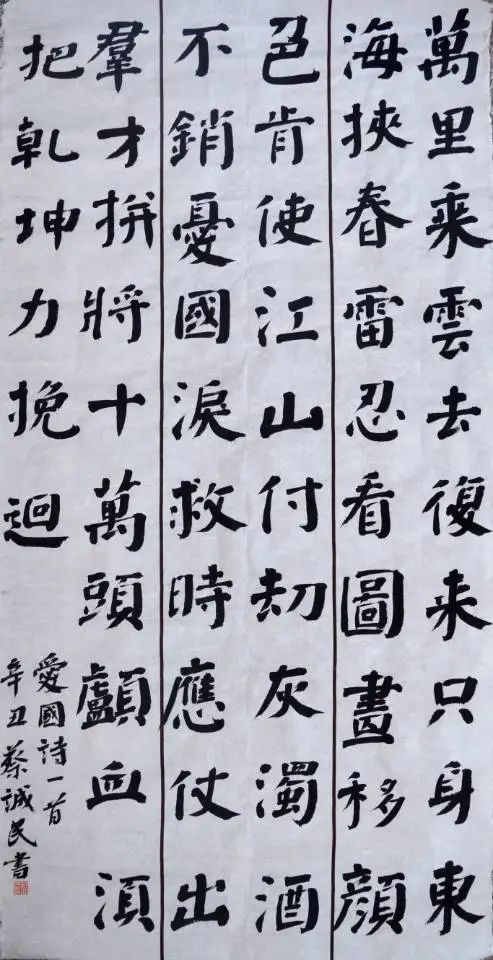 萬里乘雲去復来只身東
海挾春雷忍看圖畫移顔
色肯使江山付劫灰濁酒
不銷憂國淚救時應仗出
羣才拚將十萬頭顱血須
把乾坤力挽迴
愛國詩一首
辛丑蔡誠民書